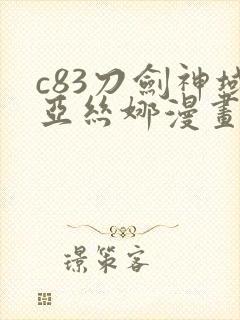 c83刀劍神域
亞絲娜漫畫
璟策客